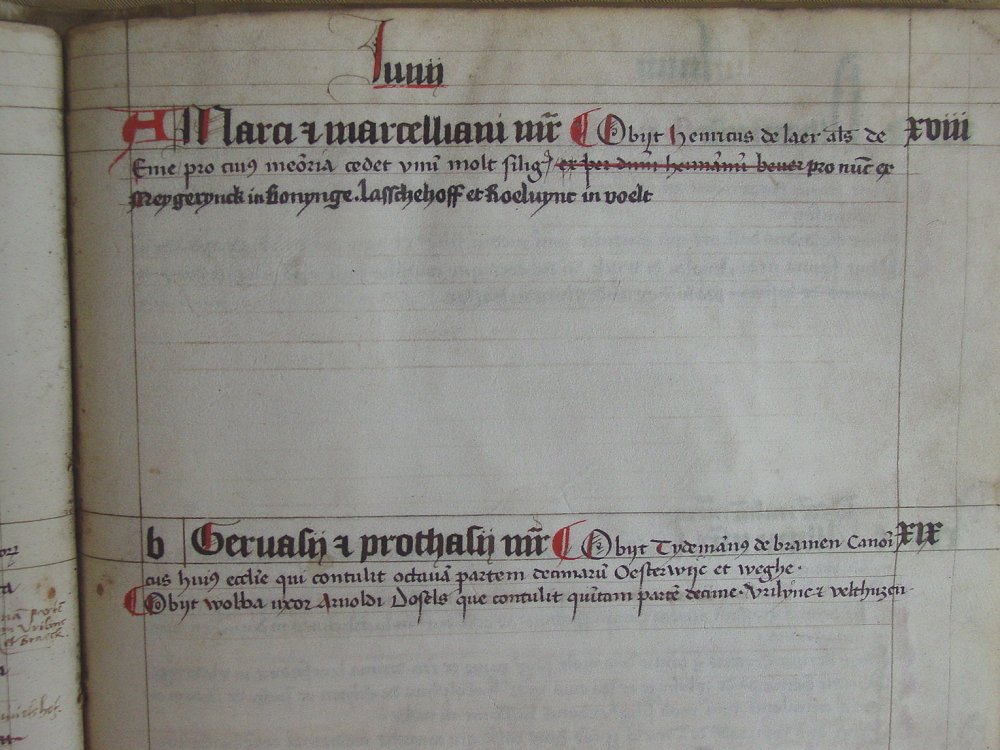 Iunij
A Marci ⁊ marcelliani mr̄ Obijt Henricus de laer als de xviii
Eme pro cuius meōria cedet vnū molt siliḡ ex per dnm̄ hermānū beuer pro nūc ex
Meygerynck in Bonynge. Lasschehoff et Roeluync in voelt
b Geruasij ⁊ prothasij mr̄ Obijt Tydemānus de bramen Canoī xix
cus huius eccl̄ie qui contulit octauā partem decimarū Oesterwijc et weghe.
Obijt wolba uxor Arnoldi Dosels que contulit quītam partē decime. Vrilync ⁊ velthuzen
et Braeck.